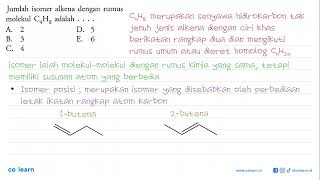 Jumlah isomer alkena dengan rumus
molekul C₄H₈ adalah . . . .
A. 2 D. 5
B. 3 E. 6
C. 4
C₄H₈ merupakan senyawa hidrokarbon tak
jenuh jenis alkena dengan ciri khas
berikatan rangkap dua dan mengikuti
rumus umum atau deret homolog CₙH₂ₙ
isomer ialah molekul-molekul dengan rumus kimia yang sama, tetapi
memiliki susunan atom yang berbeda
• Isomer posisi ; merupakan isomer yang disebabkan oleh perbedaan
letak ikatan rangkap atom karbon
1-butena 2-butena
co learn
www.colearn.id
@colearn.id